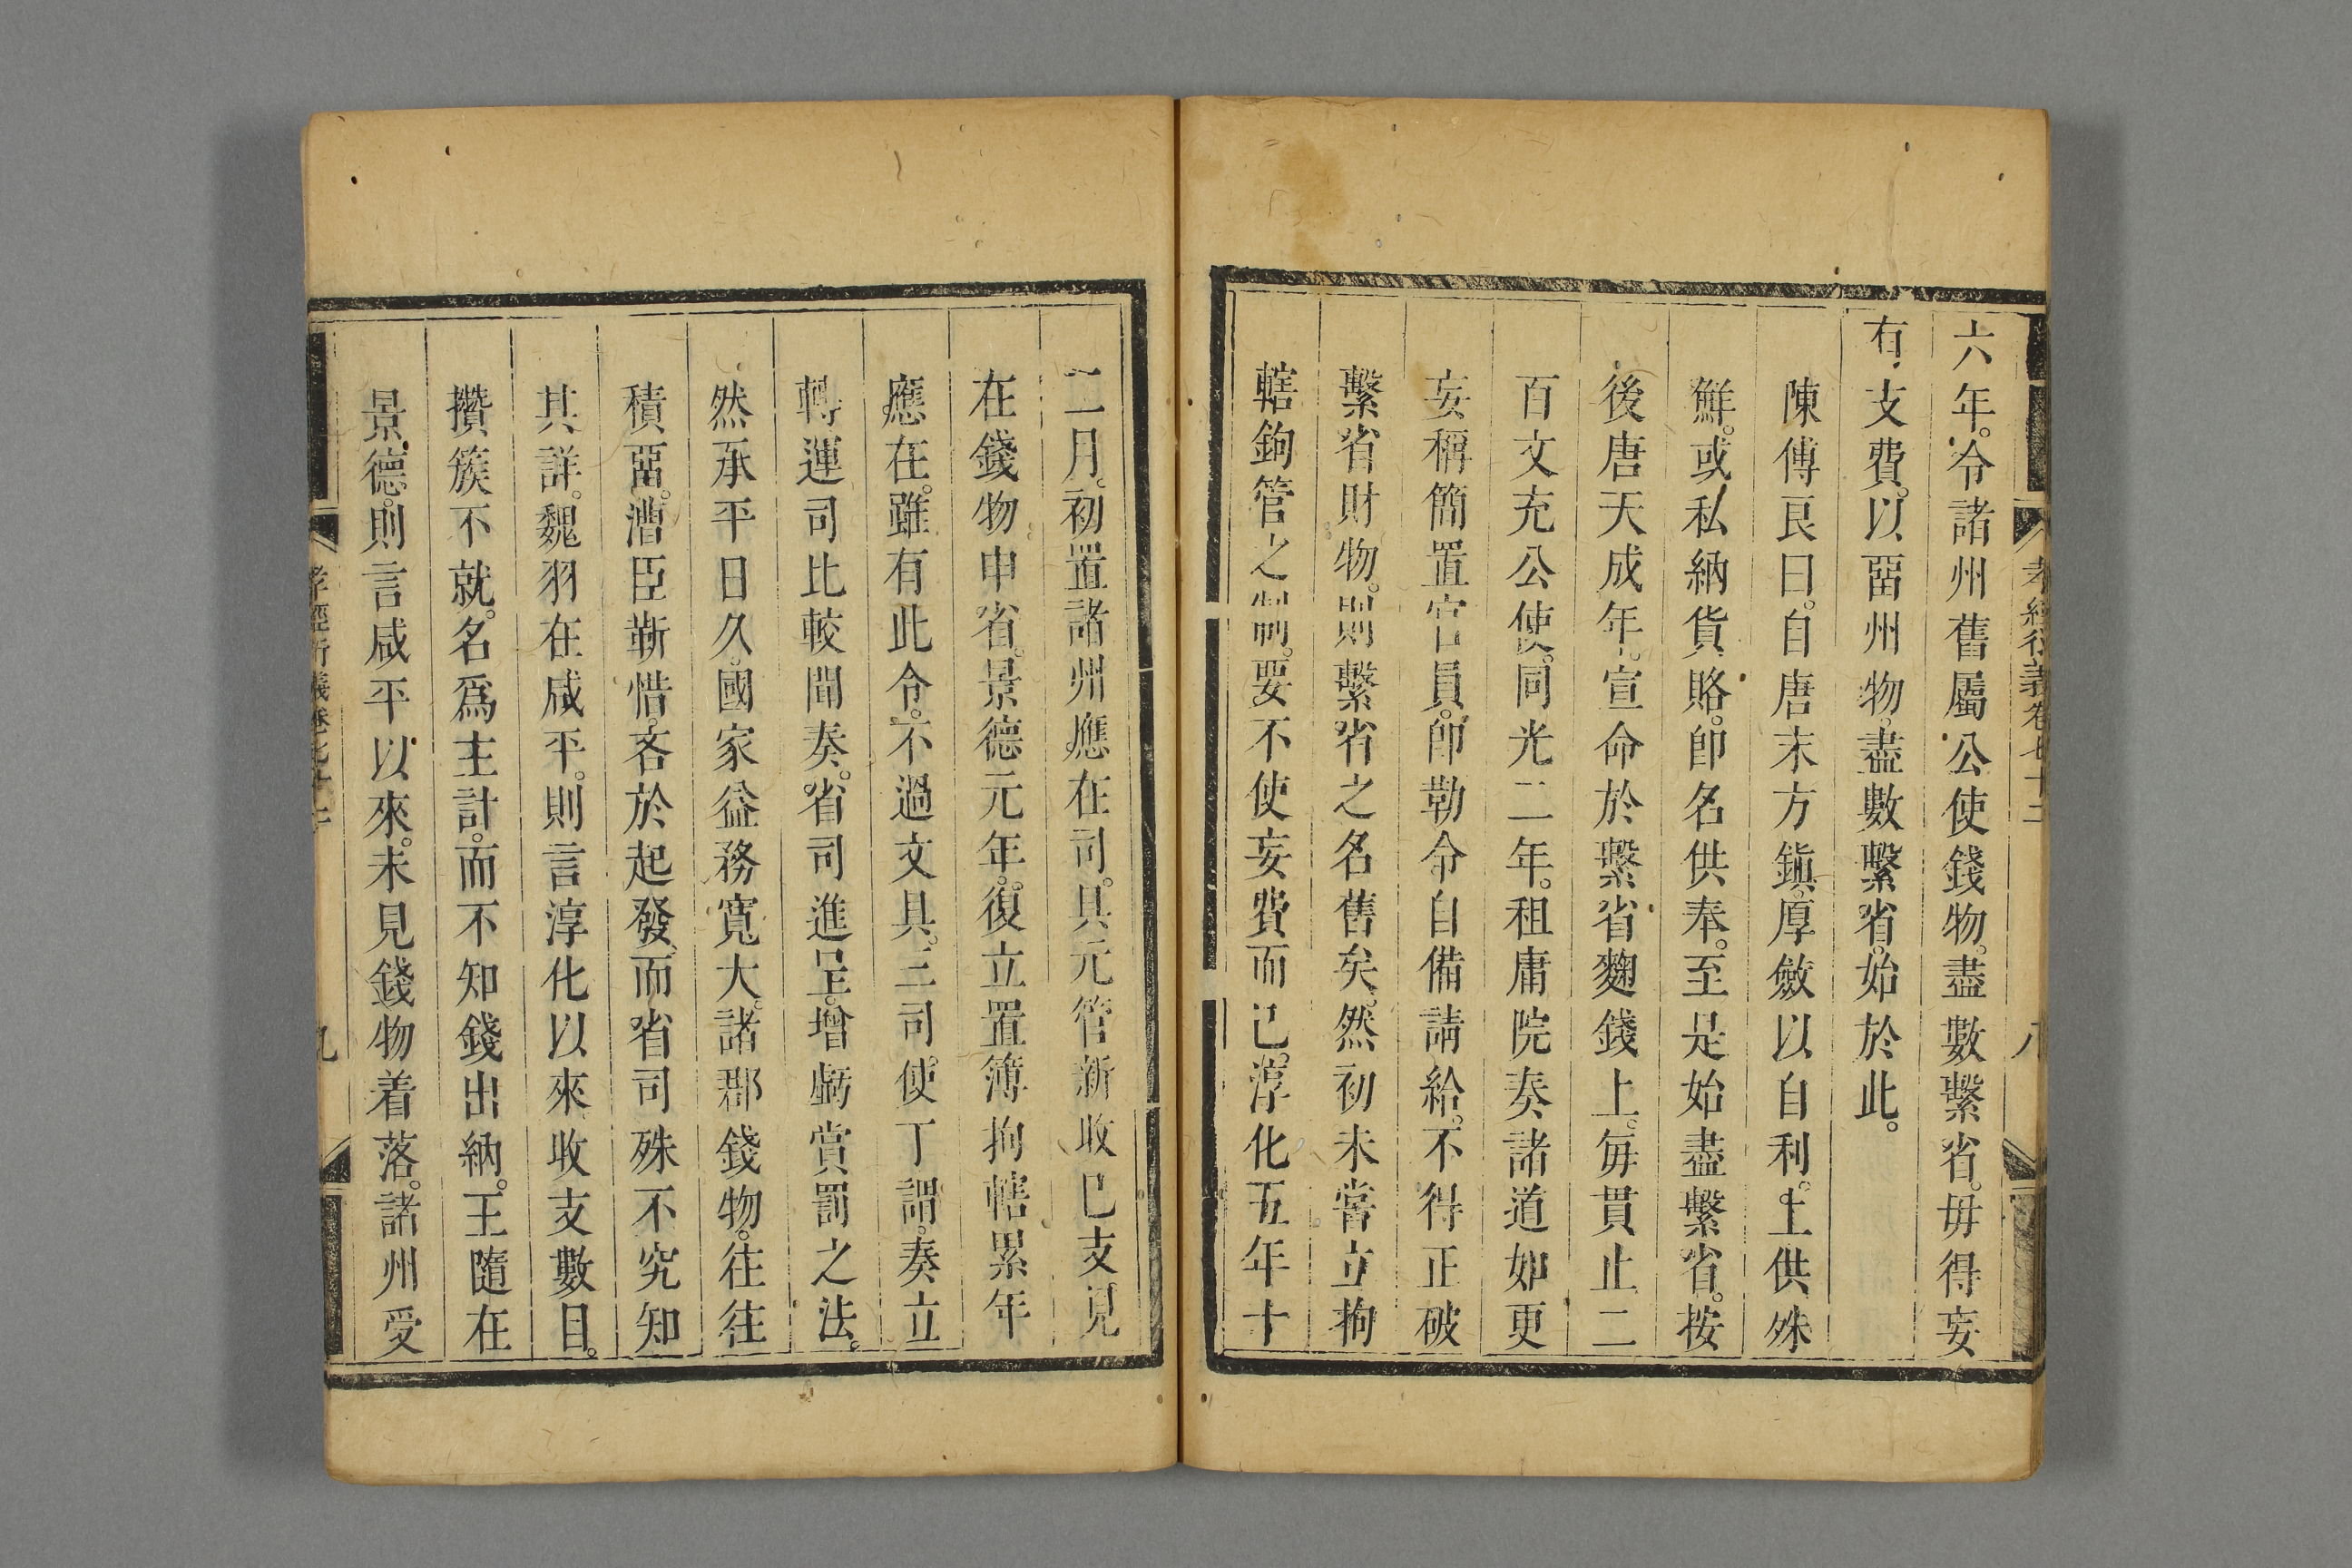 六年。令諸州舊屬公使錢物。盡數繫省。毋得妄
有支費。以畱州物。盡數繫省。始於此。
陳傅良曰。自唐末方鎮。厚斂以自利。上供殊
鮮。或私納貨賂。卽名供奉。至是始盡繫省。按
後唐天成年。宣命於繫省麴錢上。每貫止二
百文充公使。同光二年。租庸院奏諸道如更
妄稱簡置官員。卽勒令自備請給。不得正破
繫省財物。則繫省之名舊矣。然初未嘗立拘
轄鉤管之制。要不使妄費而已。淳化五年十
二月。初置諸州應在司。具元管新收已支見
在錢物申省。景德元年。復立置簿拘轄累年
應在。雖有此令。不過文具。三司使丁謂。奏立
轉運司比較聞奏。省司進呈。增虧賞罰之法。
然承平日久。國家益務寬大。諸郡錢物。往往
積畱。漕臣靳惜。吝於起發。而省司殊不究知
其詳。魏羽在咸平。則言淳化以來收支數目。
攢簇不就。名爲主計。而不知錢出納。王隨在
景德。則言咸平以來。未見錢物着落。諸州受
孝經衍義卷七十二
九